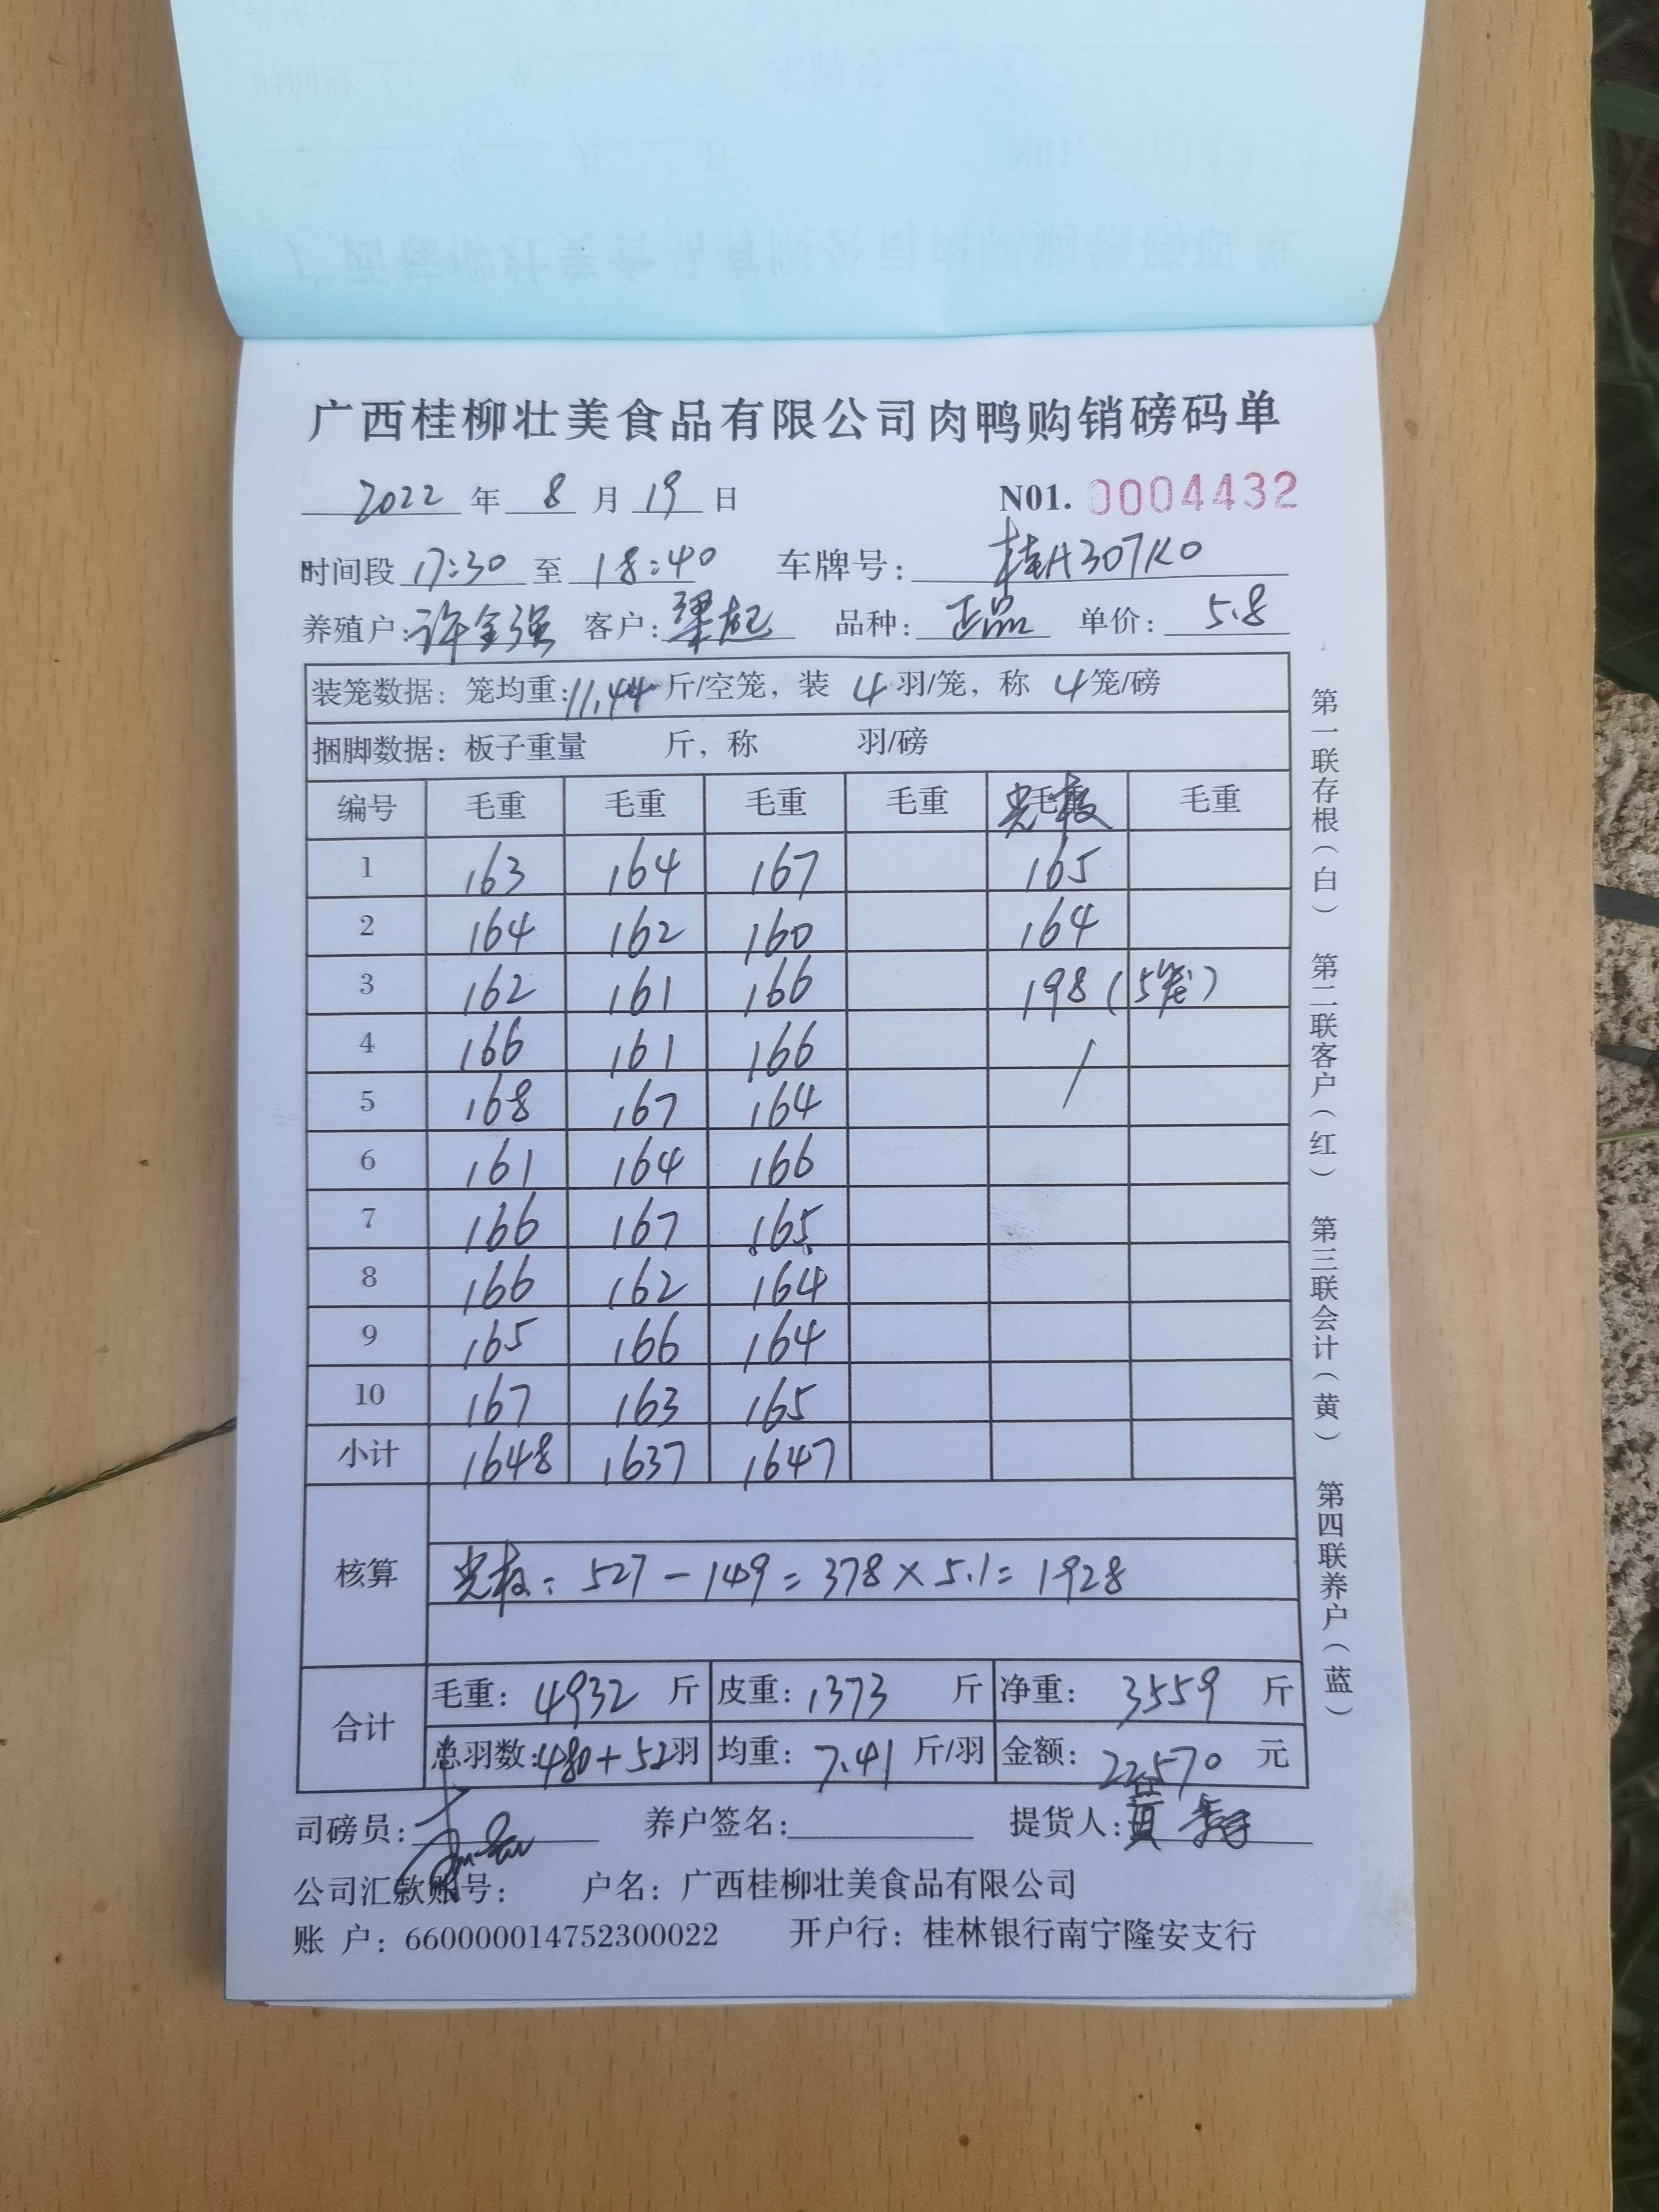 广西桂柳壮美食品有限公司肉鸭购销磅码单
2022 年 8 月 19 日 N01. 0004432
时间段 17:30 至 18:40 车牌号: 桂A307K0
养殖户: 许金强 客户: 梁起 品种: 正品 单价: 5.8
装笼数据: 笼均重: 11.44 斤/空笼, 装 4 羽/笼, 称 4 笼/磅
捆脚数据: 板子重量 斤, 称 羽/磅
编号 毛重 毛重 毛重 毛重 毛重 毛重
1 163 164 167 165
2 164 162 160 164
3 162 161 166 198 (5笼)
4 166 161 166 /
5 168 167 164
6 161 164 166
7 166 167 165
8 166 162 164
9 165 166 164
10 167 163 165
小计 1648 1637 1647
核算
: 527 - 149 = 378 × 5.1 = 1928
合计
毛重: 4932 斤 皮重: 1373 斤 净重: 3559 斤
总羽数: 480+52羽 均重: 7.41 斤/羽 金额: 22570 元
司磅员: 养户签名: 提货人: 黄
公司汇款账号: 户名: 广西桂柳壮美食品有限公司
账 户: 660000014752300022 开户行: 桂林银行南宁隆安支行
第一联存根(白) 第二联客户(红) 第三联会计(黄) 第四联养户(蓝)